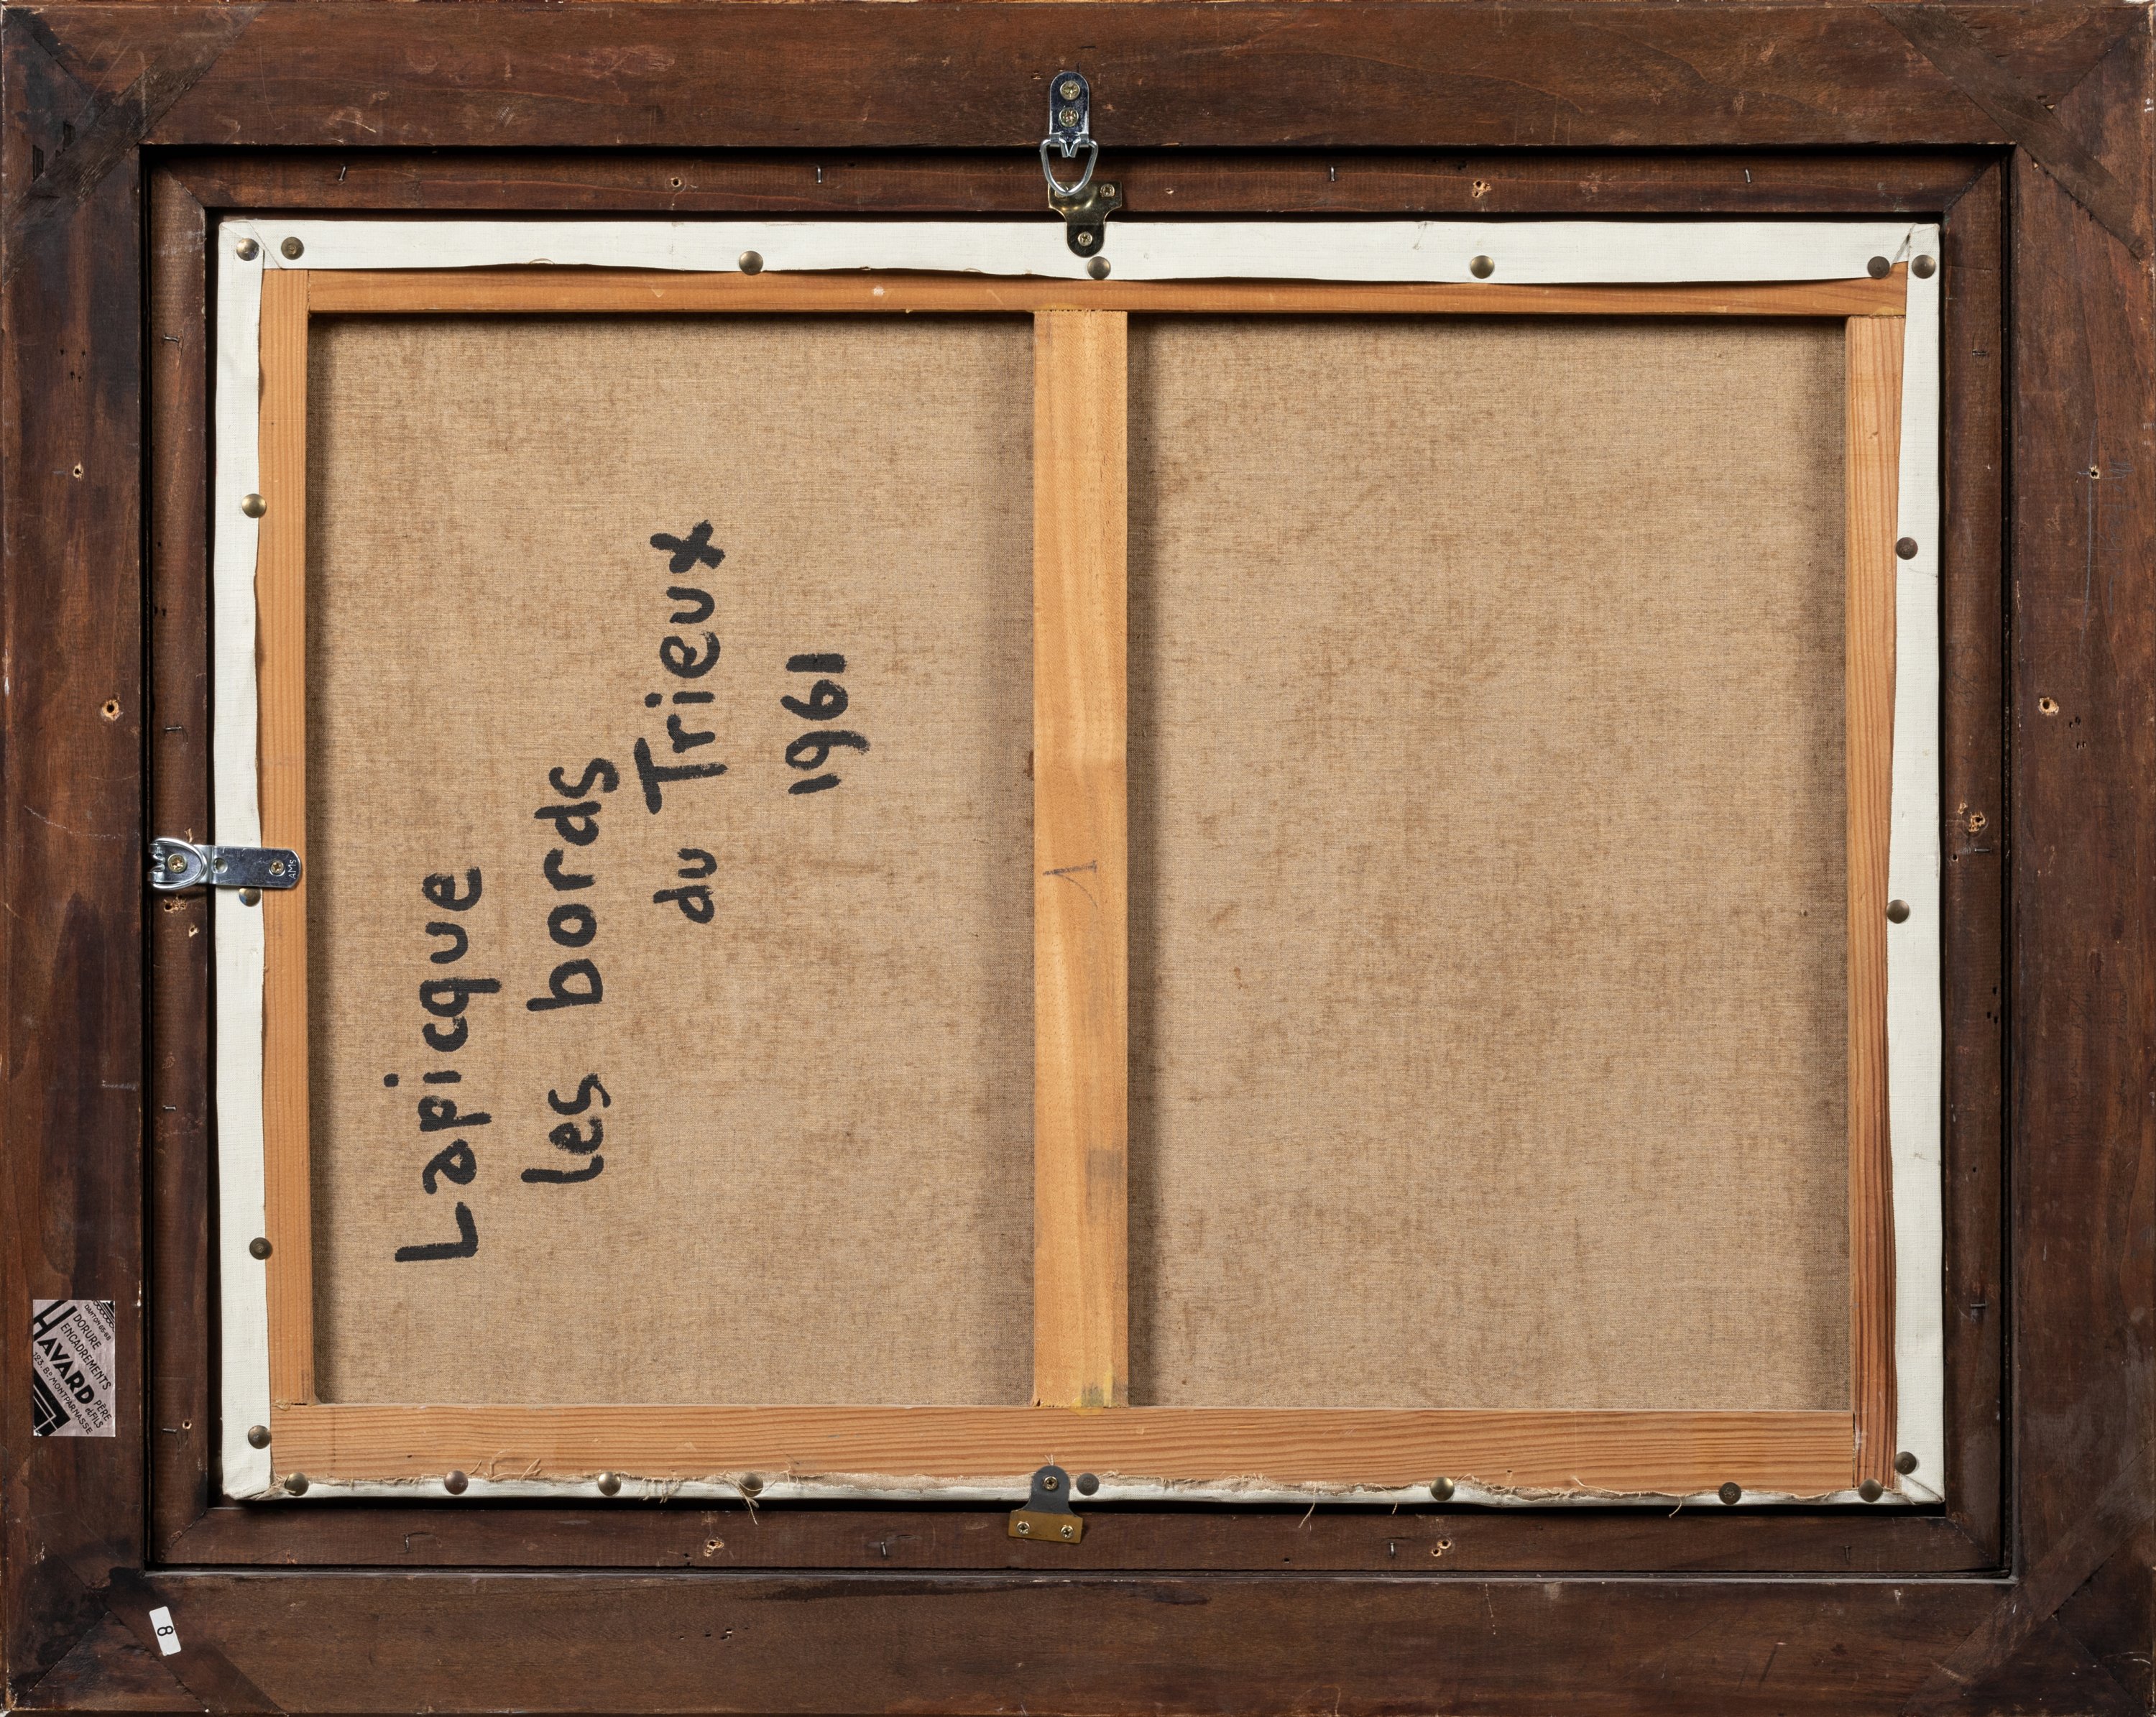 Lapicque
les bords
du Trieux
1961
DANTON 65-68
DORURE
ENCADREMENTS
HAVARD PÈRE
et FILS
123, Bd. MONTPARNASSE
8
AMS